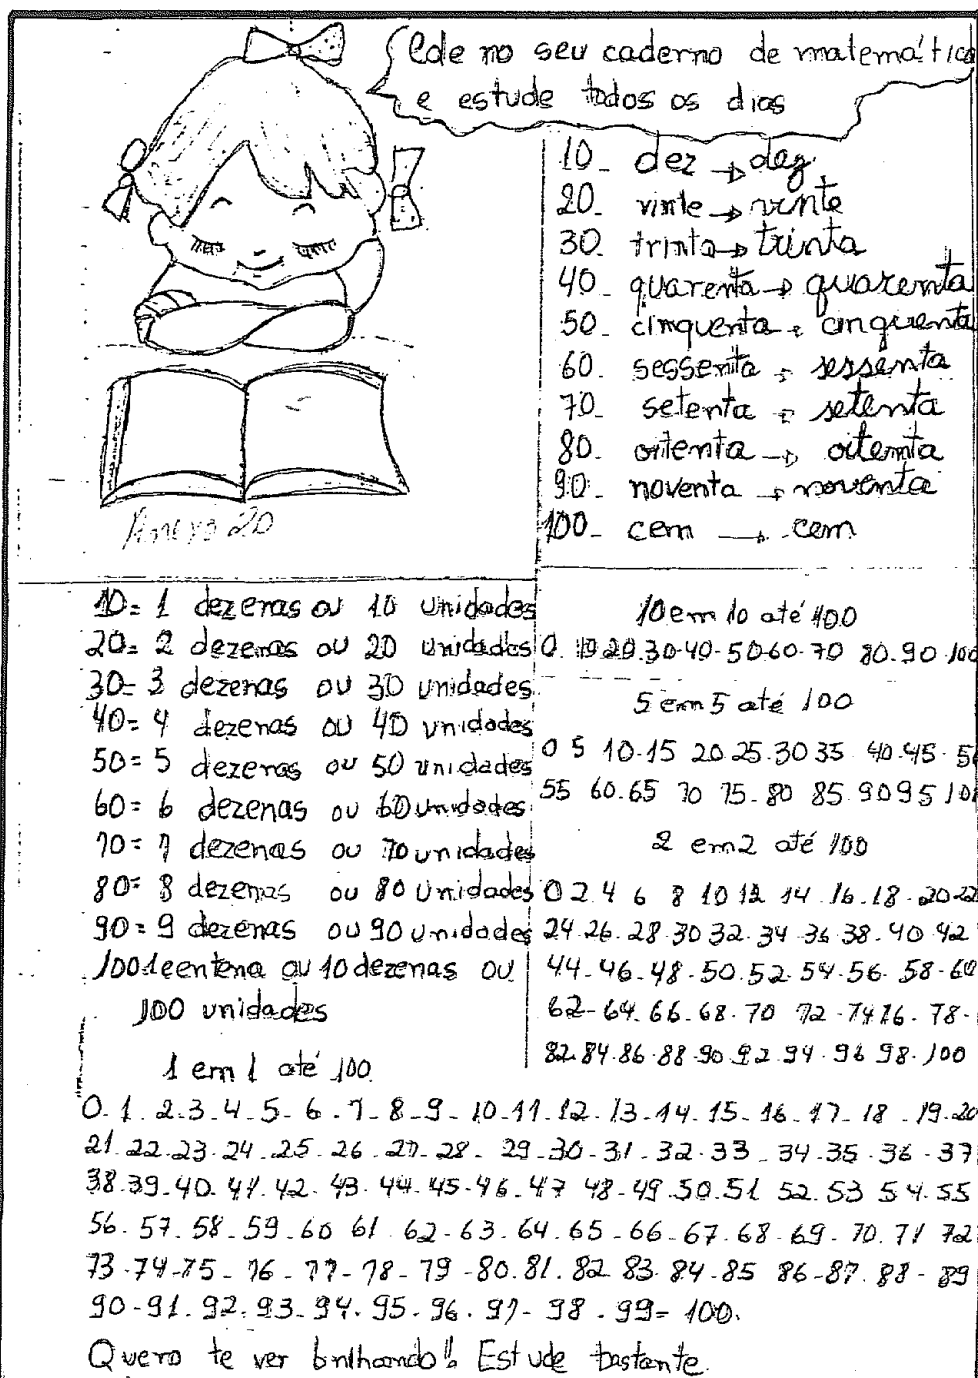 Cole no seu caderno de matemática
e estude todos os dias
10- dez → dez
20- vinte → vinte
30- trinta → trinta
40- quarenta → quarenta
50- cinquenta → cinquenta
60- sessenta → sessenta
70- setenta → setenta
80- oitenta → oitenta
90- noventa → noventa
100- cem → cem
Anexo 20
10= 1 dezenas ou 10 unidades
20= 2 dezenas ou 20 unidades
30= 3 dezenas ou 30 unidades
40= 4 dezenas ou 40 unidades
50= 5 dezenas ou 50 unidades
60= 6 dezenas ou 60 unidades
70= 7 dezenas ou 70 unidades
80= 8 dezenas ou 80 unidades
90= 9 dezenas ou 90 unidades
100 1 centena ou 10 dezenas ou
100 unidades
10 em 10 até 100
0. 10.20.30-40-50-60-70 80.90 100
5 em 5 até 100
0 5 10-15 20.25.30 35 40.45-
55 60.65 70 75-80 85.90 95
2 em 2 até 100
0 2 4 6 8 10 12 14 16.18.20-22
24.26.28 30 32.34 36 38.40 42
44-46-48-50.52.54-56.58-60
62-64.66.68.70 72-74 76.78-
82.84.86.88.90.92.94.96 98.100
1 em 1 até 100
0.1.2.3.4-5-6-7-8-9-10-11.12.13-14.15-16-17-18-19-20
21.22.23.24.25-26-27-28-29-30-31-32-33-34-35-36-37
38.39-40.41.42.43.44.45-46-47 48-49.50.51 52.53 54.55
56.57.58-59.60 61.62-63.64.65-66-67.68.69-70.71 72
73-74-75-76-77-78-79-80.81.82 83.84-85 86-87.88-89
90-91.92.93-94.95.96.97-98.99=100.
Quero te ver brilhando!! Estude bastante.